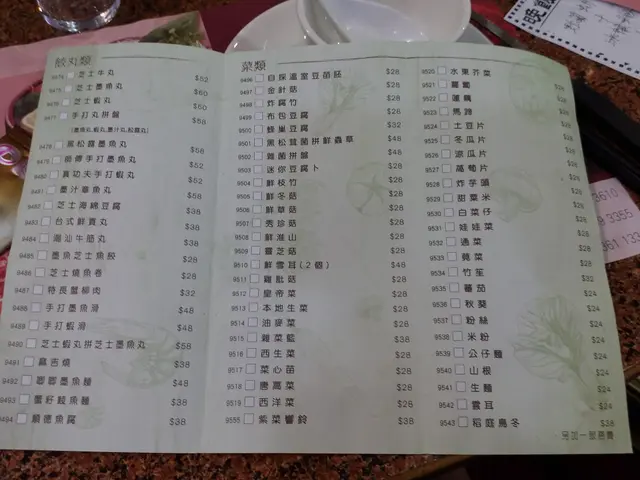 餃丸類
9474 芝士牛丸 $52
9475 芝士墨魚丸 $60
9476 芝士蝦丸 $50
9477 手打丸拼盤 $58
9478 黑松露墨魚丸 $58
9479 師傅手打墨魚丸 $52
9480 真功夫手打蝦丸 $52
9481 墨汁章魚丸 $58
9482 芝士海綿豆腐 $38
9483 台式鮮貢丸 $38
9484 潮汕牛筋丸 $38
9485 墨魚芝士魚餃 $28
9486 芝士燒魚卷 $28
9487 特長蟹柳肉 $32
9488 手打墨魚滑 $48
9489 手打蝦滑 $48
9490 芝士蝦丸拼芝士墨魚丸 $58
9491 麻吉燒 $38
9492 唧唧墨魚麵 $48
9493 蟹籽鯪魚麵 $38
9494 順德魚腐 $38
菜類
9496 自採溫室豆苗胚 $28
9497 金針菇 $28
9498 炸腐竹 $28
9499 布包豆腐 $28
9500 蜂巢豆腐 $32
9501 黑松茸菌拼鮮蟲草 $48
9502 雜菌拼盤 $48
9503 迷你豆腐卜 $28
9504 鮮枝竹 $28
9505 鮮冬菇 $28
9506 鮮草菇 $28
9507 秀珍菇 $28
9508 鮮淮山 $28
9509 靈芝菇 $28
9510 鮮雪耳(2個) $48
9511 雞肶菇 $28
9512 皇帝菜 $28
9513 本地生菜 $28
9514 油麥菜 $28
9515 雜菜籃 $38
9516 西生菜 $28
9517 菜心苗 $28
9518 唐萵菜 $28
9519 西洋菜 $28
9555 紫菜響鈴 $38
9520 水東芥菜 $28
9521 蘿蔔 $28
9522 蓮藕 $28
9523 馬蹄 $28
9524 土豆片 $28
9525 冬瓜片 $28
9526 涼瓜片 $28
9527 萵筍片 $28
9528 炸芋頭 $28
9529 甜粟米 $28
9530 白菜仔 $28
9531 娃娃菜 $28
9532 通菜 $28
9533 莧菜 $28
9534 竹笙 $32
9535 蕃茄 $24
9536 秋葵 $24
9537 粉絲 $24
9538 米粉 $24
9539 公仔麵 $24
9540 山根 $24
9541 生麵 $24
9542 雲耳 $24
9543 稻庭烏冬 $38
另加一服務費